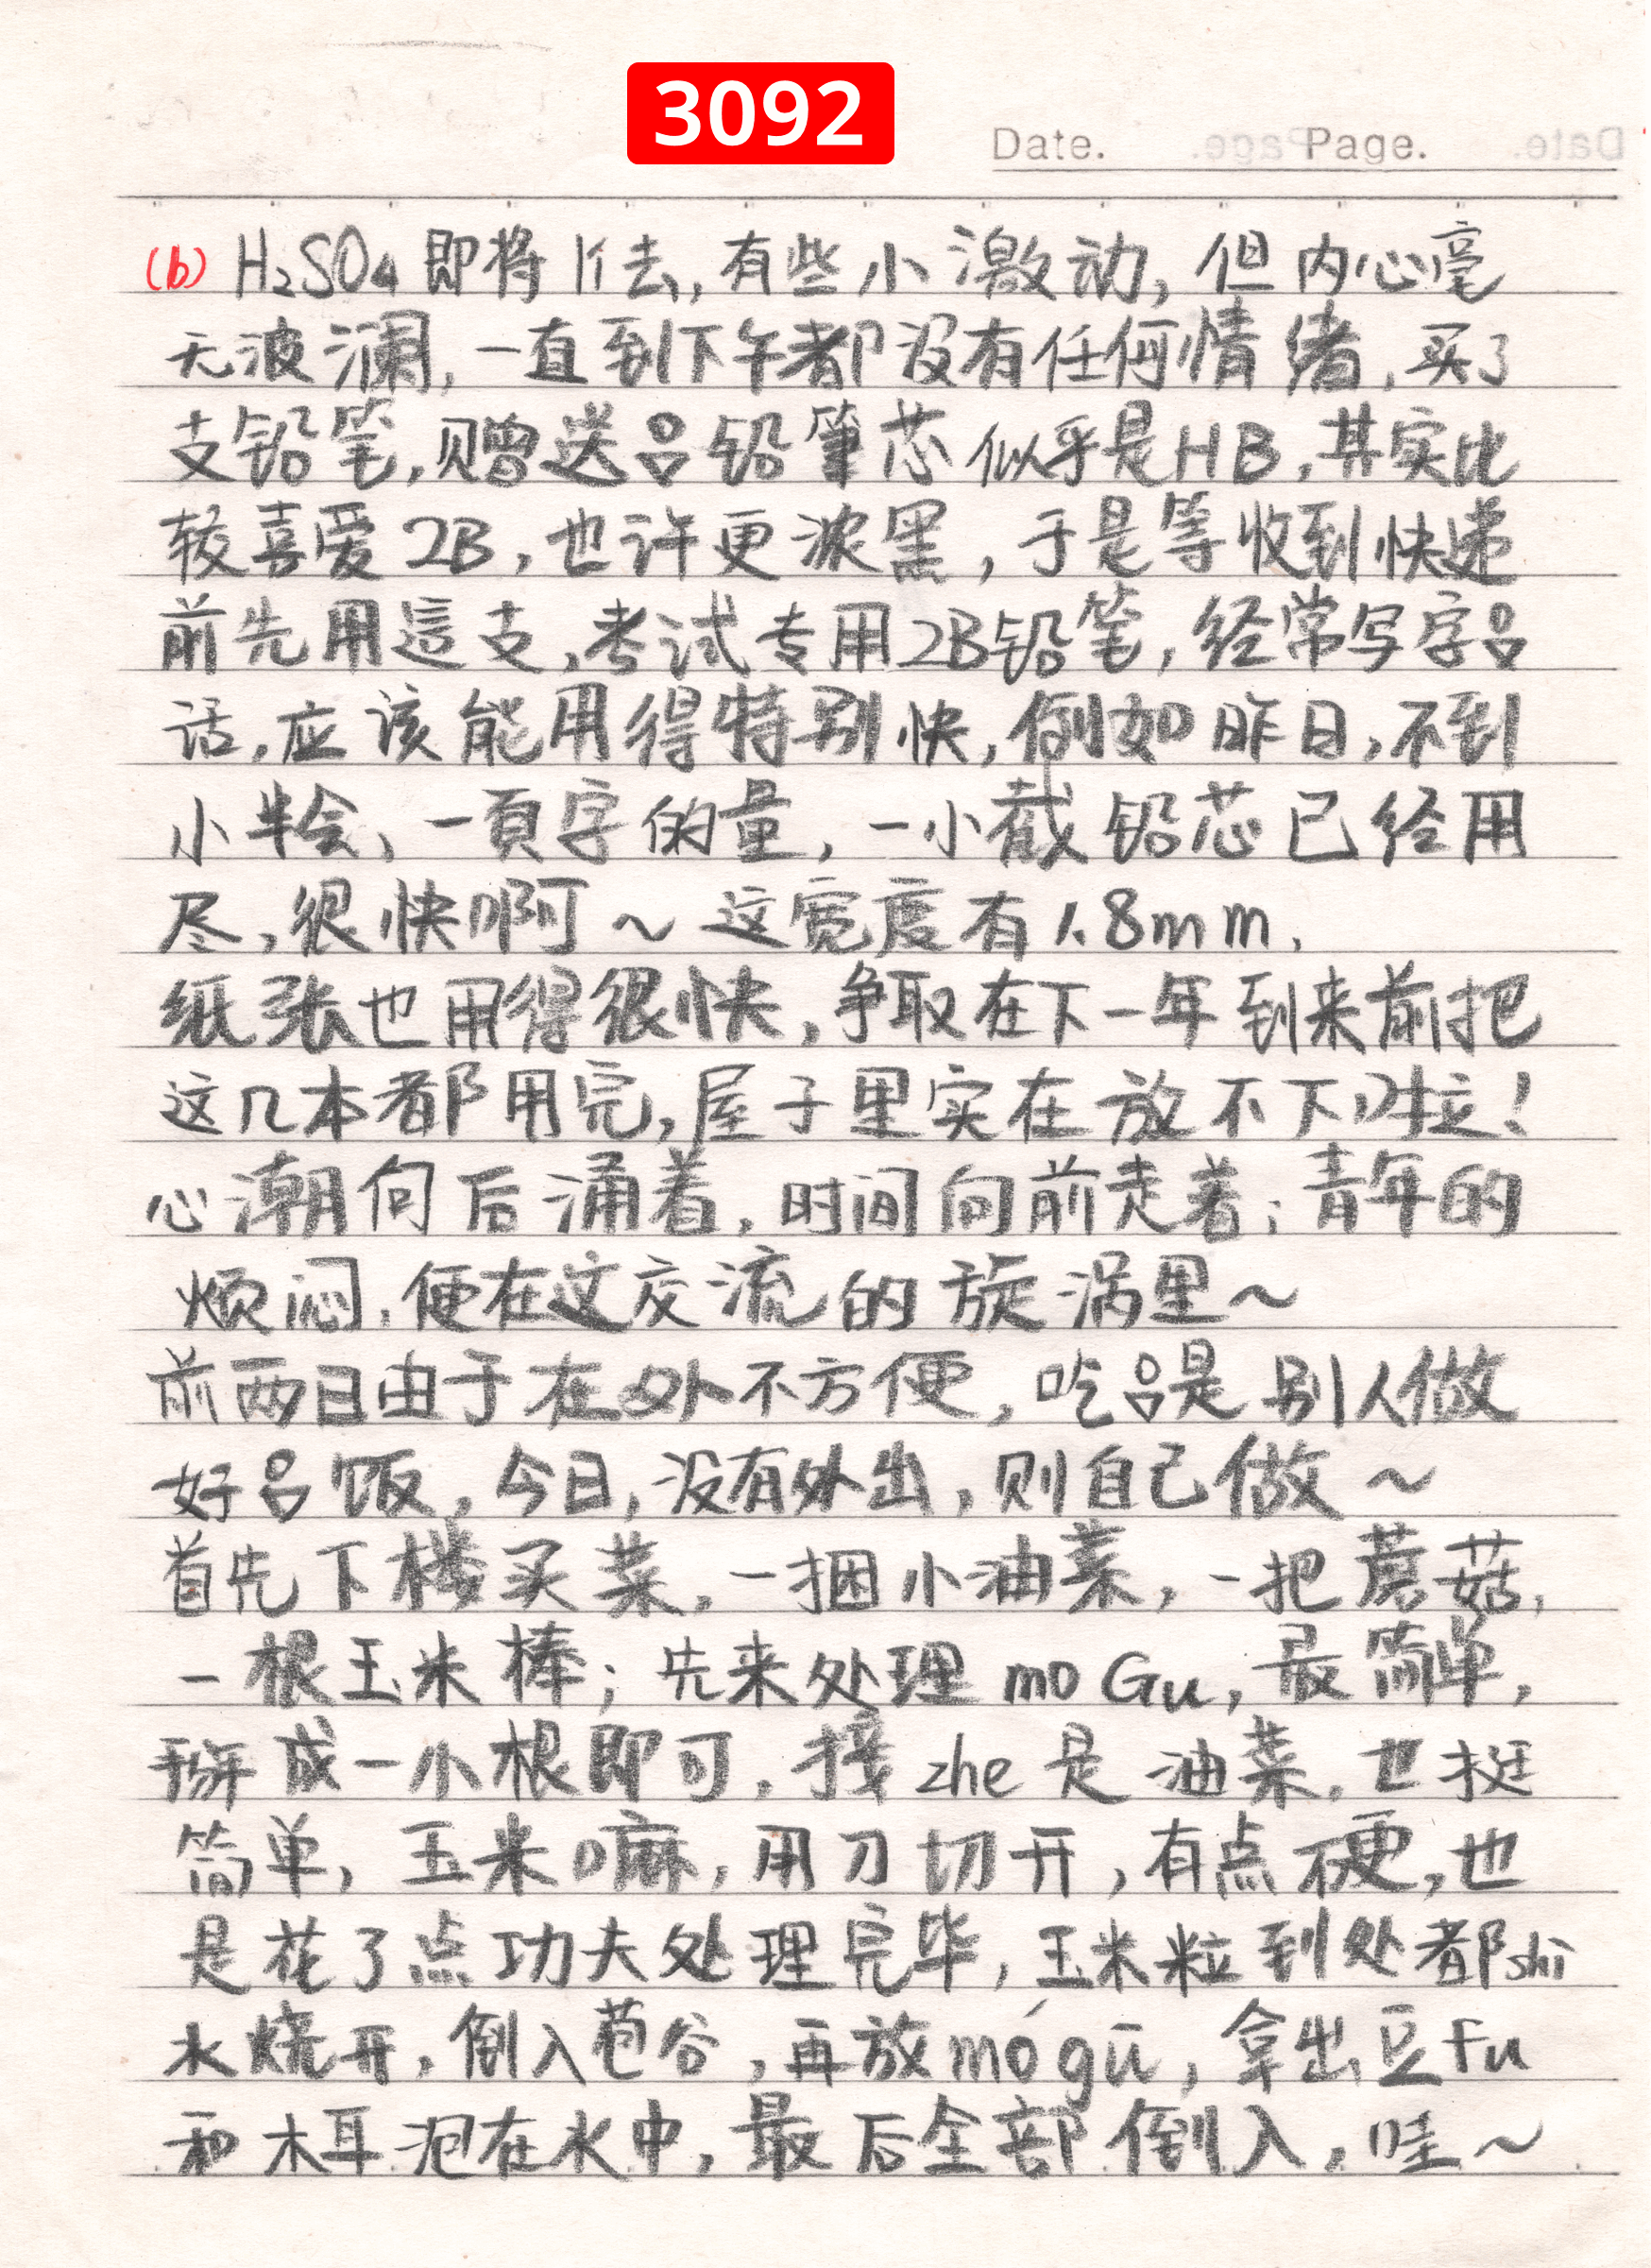 3092
Date. Page.
(b) H₂SO₄即将 li 去,有些小激动,但内心毫
无波澜,一直到下午都没有任何情绪,买了
支铅笔,赠送吕铅筆芯似乎是HB,其实比
较喜爱2B,也许更浓黑,于是等收到快递
前先用這支,考试专用2B铅笔,经常写字吕
话,应该能用得特别快,倒如昨日,不到
小半会、一頁字的量,一小截铅芯已经用
尽,很快啊~这宽度有1.8mm,
纸张也用得很快,争取在下一年到来前把
这几本都用完,屋子里实在放不下啦!
心潮向后涌着,时间向前走着;青年的
烦闷,便在这交流的旋涡里~
前两日由于在外不方便,吃吕是别人做
好吕饭,今日,没有外出,则自己做~
首先下楼买菜,一捆小油菜,一把蘑菇,
一根玉米棒;先来处理 mo Gu,最简单,
掰成一小根即可,接 zhe 是油菜,也挺
简单,玉米嘛,用刀切开,有点硬,也
是花了点功夫处理完毕,玉米粒到处都shi
水烧开,倒入苞谷,再放mó gū,拿出豆fu
和木耳泡在水中,最后全部倒入,哇~